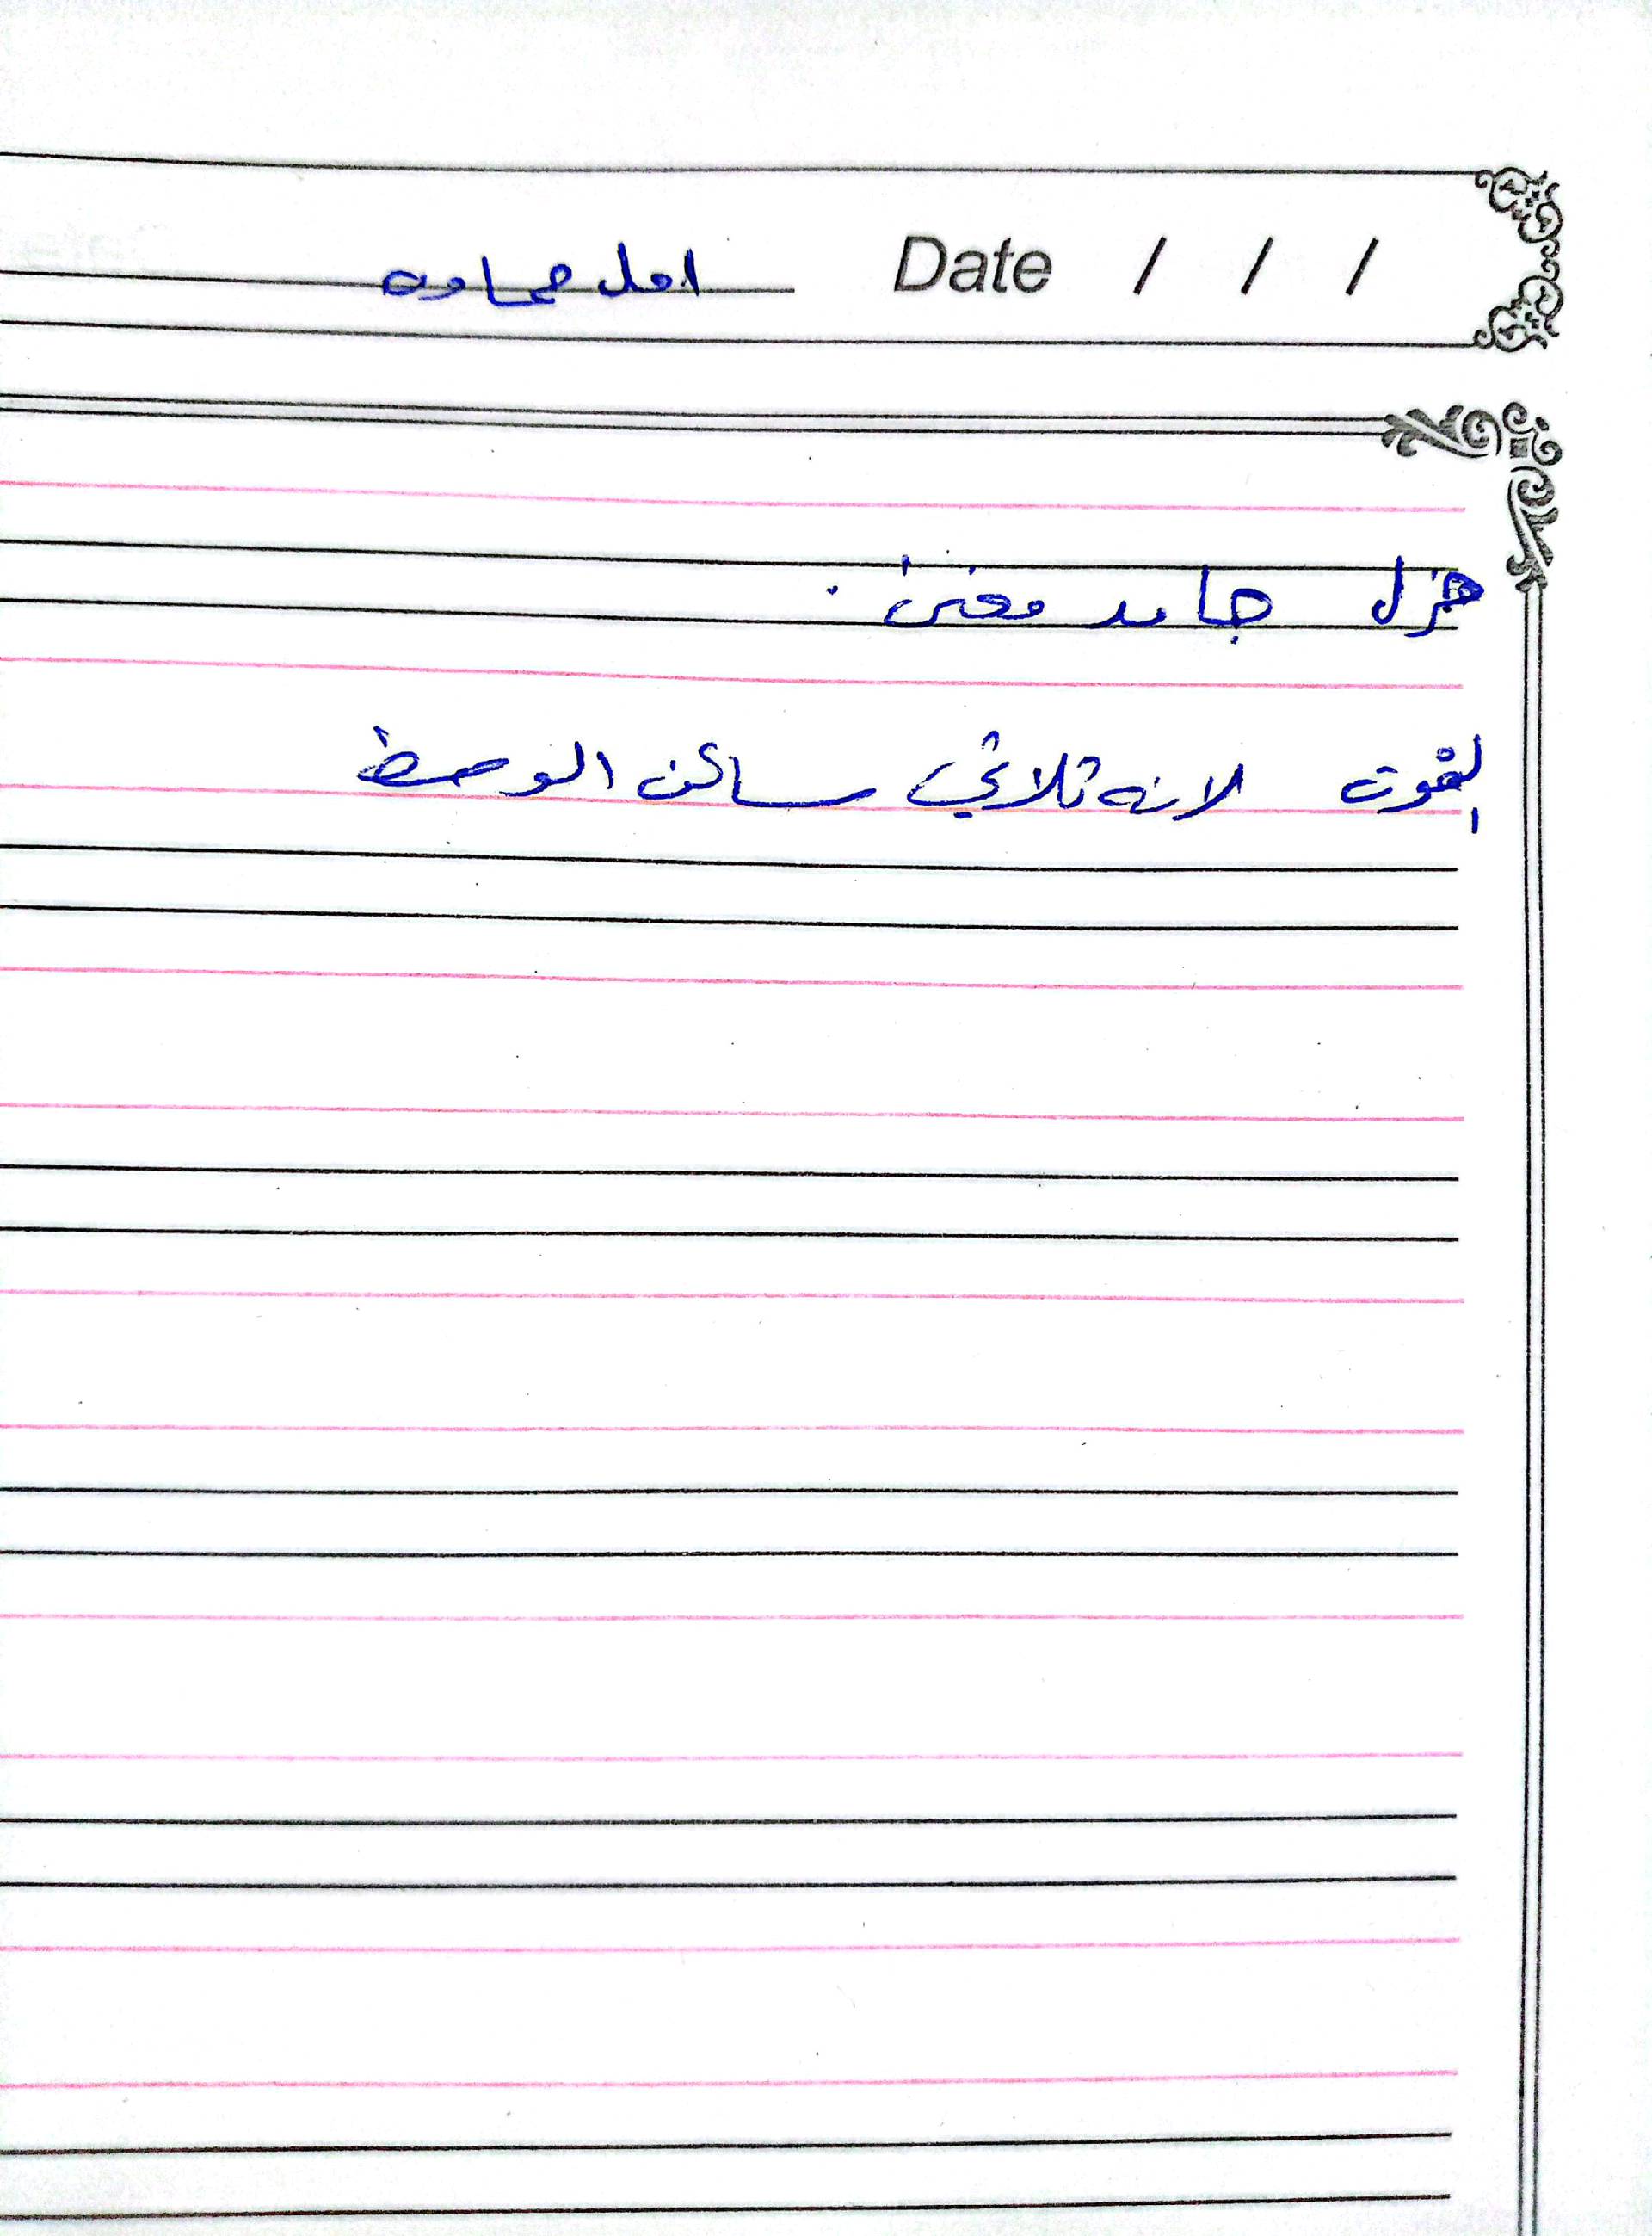 Date / / / امل حماده
هزل جامد معنى .
لغوب لانه ثلاثي ساكن الوسط